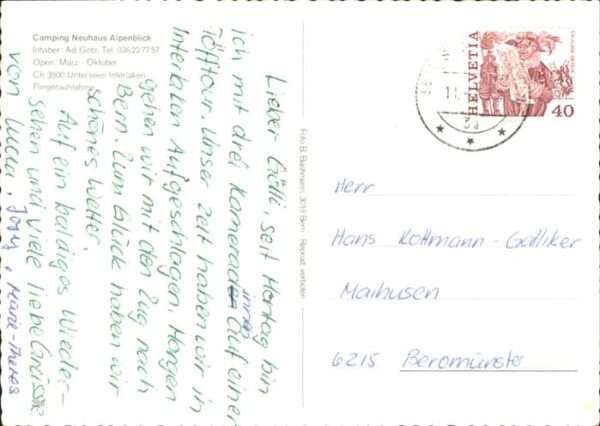 Camping Neuhaus Alpenblick
Inhaber: Ad. Gobr. Tel. 036 22 77 57
Open: März - Oktober
CH 3800 Unterseen-Interlaken
Flugaufnahme
Lieber Götti, seit Montag bin
ich mit drei Kameradinnen auf einer
Töfftour. Unser Zelt haben wir in
Interlaken Aufgeschlagen. Morgen
gehen wir mit den Zug nach
Bern. Zum Glück haben wir
schönes Wetter.
Auf ein baldiges Wieder-
sehen und viele liebe Grüsse
von Luzia, Josy, Marie-Theres
Foto B. Bachmann, 3018 Bern Reprod. verboten
HELVETIA
40
Herr
Hans Kottmann-Galliker
Maihusen
6215 Beromünster